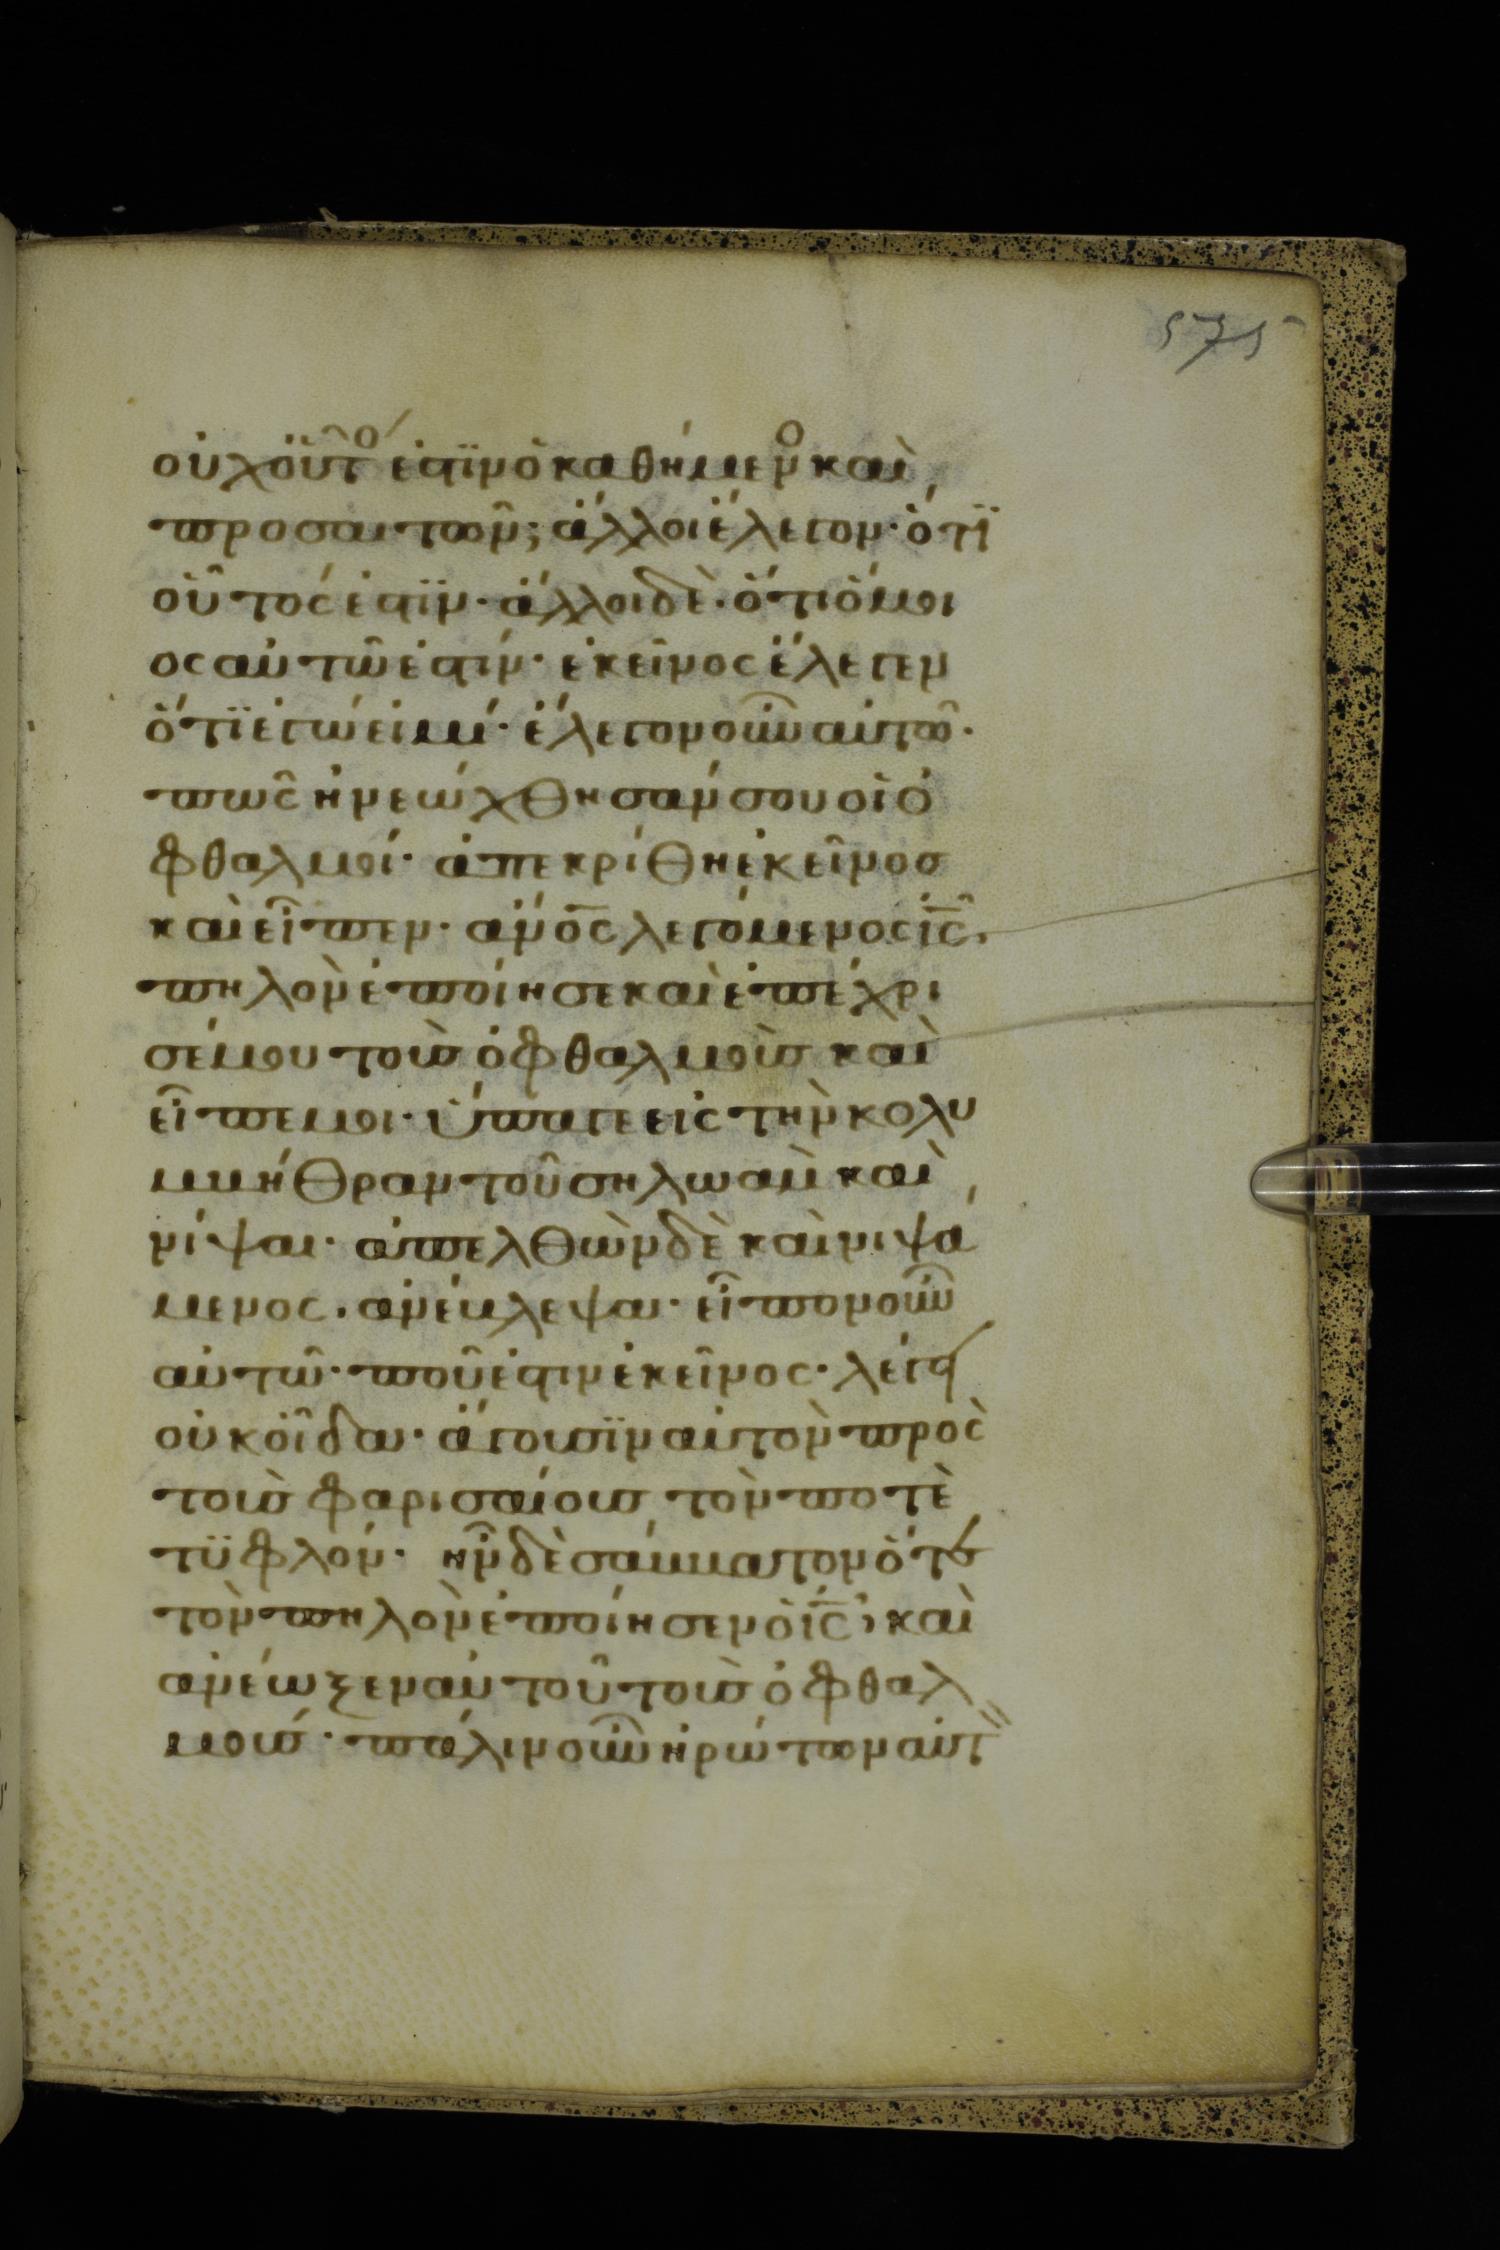 575
οὐχοὗτός ἐστϊν ὁ καθήμενο καὶ
προσαιτῶν; ἄλλοι ἔλεγον· ὅτϊ
οὗτός ἐστϊν· ἄλλοι δὲ· ὅτι ὅμοι
ος αὐτῶ ἐστίν· ἐκεῖνος ἔλεγεν
ὅτϊ ἐγώ εἰμί· ἔλεγον οὖν αὐτῶ·
πῶς ἠνεώχθησάν σου οἱ ὀ
φθαλμοί· ἀπεκρίθη ἐκεῖνοσ
καὶ εἶπεν· ἄνος λεγόμενος ις̅.
πηλὸν ἐποίησε καὶ ἐπέχρι
σέ μου τοὺσ ὀφθαλμοὺσ καὶ
εἶπέ μοι· ὕπαγε εἰς τὴν κολυ
μβήθραν τοῦ σηλωαμ καὶ
νίψαι· ἀπελθὼν δὲ καὶ νιψά
μενος. ἀνέβλεψα· εἶπον οὖν
αὐτῶ· ποῦ ἐστιν ἐκεῖνος· λέγει
οὐκ οἶδα· ἄγουσϊν αὐτὸν πρὸς
τοὺσ φαρισαίουσ, τὸν ποτὲ
τϋφλόν· ἦν δὲ σάββατον ὅτε
τὸν πηλὸν ἐποίησεν ὁ ις̅, καὶ
ἀνέωξεν αὐτοῦ τοὺσ ὀφθαλ
μούσ· πάλιν οὖν ἠρώτων αὐτ